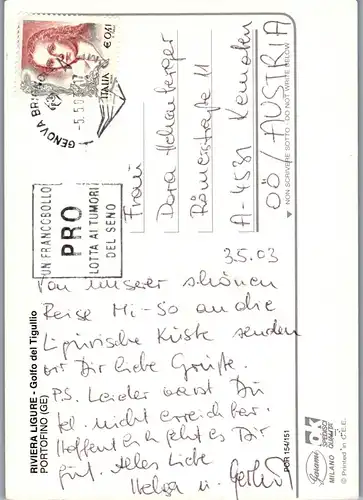 RIVIERA LIGURE - Golfo del Tigullio
PORTOFINO (GE)
ITALIA €0,41
GENOVA BR
- 5.5.0
UN FRANCOBOLLO
PRO
LOTTA AI TUMORI
DEL SENO
3.5.03
Von unserer schönen
Reise Mi-So an die
Ligurische Küste senden
wir Dir liebe Grüße.
P.S. Leider warst Du
tel. nicht erreichbar.
Hoffentlich geht es Dir
gut. Alles Liebe
Helga u.
Frau
Dora
Römerstraße 11
A-4531 Kematen
OÖ / AUSTRIA
NON SCRIVERE SOTTO - DO NOT WRITE BELOW
POR 154/151
MILANO
© Printed in C.E.E.